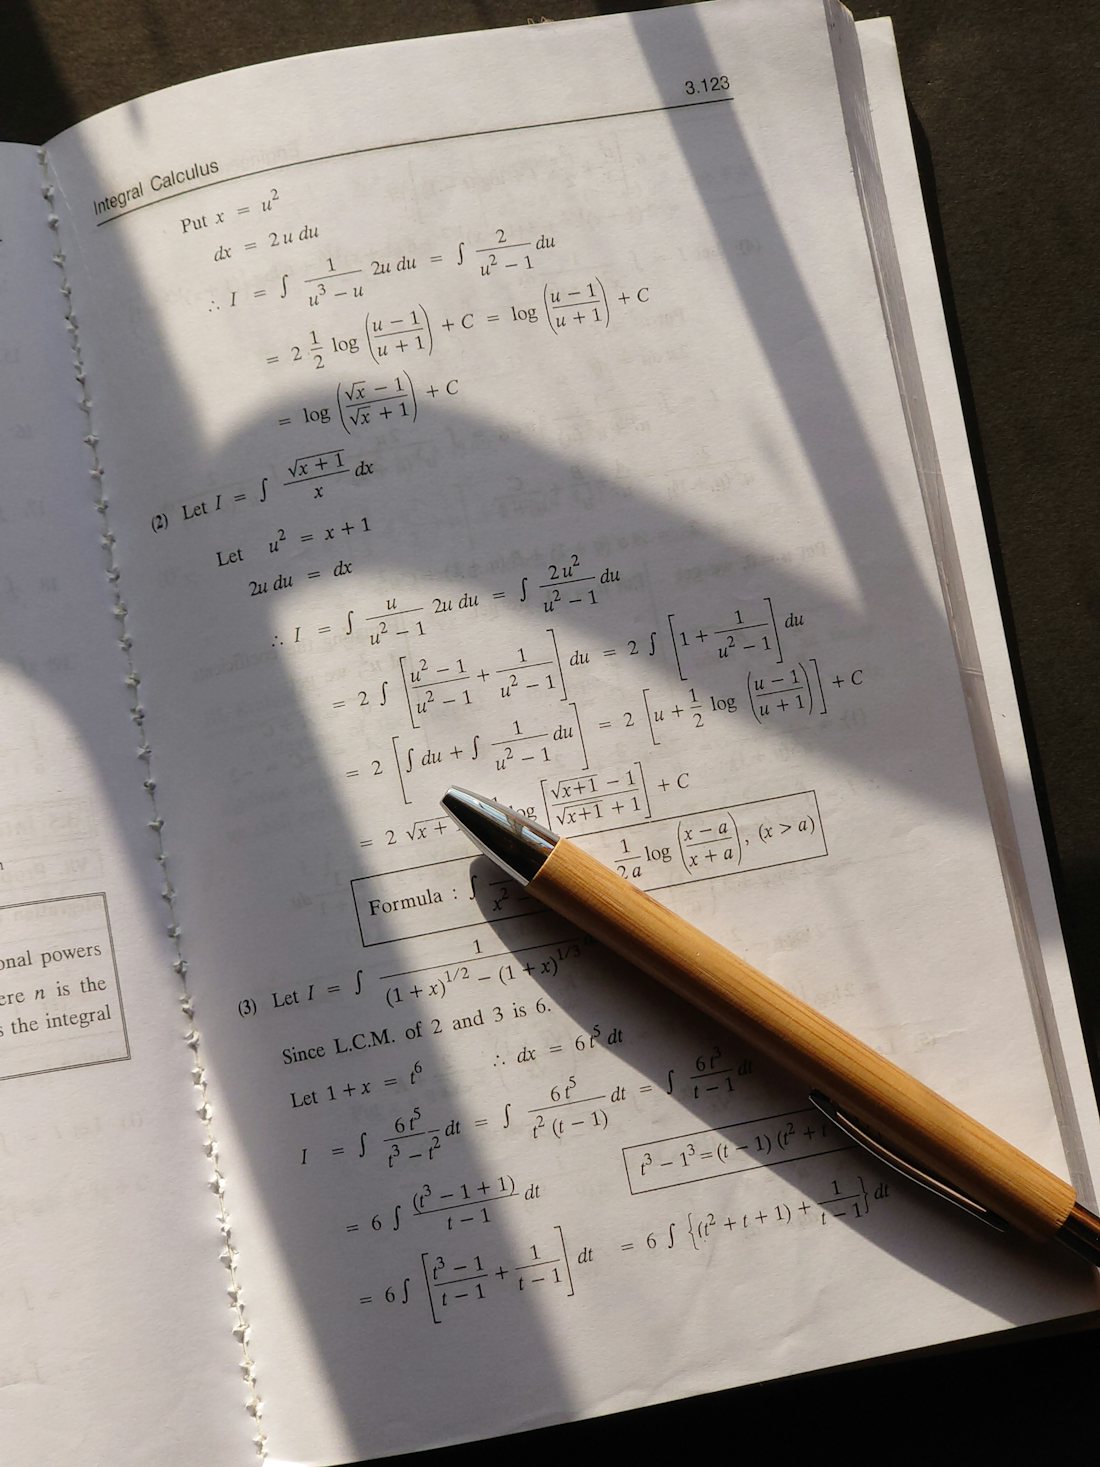 3.123
Integral Calculus
Put x = u²
dx = 2u du
∴ I = ∫ 1/(u³ − u) 2u du = ∫ 2/(u² − 1) du
= 2 1/2 log ((u − 1)/(u + 1)) + C = log ((u − 1)/(u + 1)) + C
= log ((√x − 1)/(√x + 1)) + C
(2) Let I = ∫ √(x + 1)/x dx
Let u² = x + 1
2u du = dx
∴ I = ∫ u/(u² − 1) 2u du = ∫ 2u²/(u² − 1) du
= 2 ∫ [(u² − 1)/(u² − 1) + 1/(u² − 1)] du = 2 ∫ [1 + 1/(u² − 1)] du
= 2 [∫ du + ∫ 1/(u² − 1) du] = 2 [u + 1/2 log ((u − 1)/(u + 1))] + C
= 2 √x + [(√(x+1) − 1)/(√(x+1) + 1)] + C
Formula : ∫ x² − 1/2a log ((x − a)/(x + a)), (x > a)
(3) Let I = ∫ 1/((1 + x)^1/2 − (1 + x)^1/3)
Since L.C.M. of 2 and 3 is 6.
Let 1 + x = t⁶ ∴ dx = 6t⁵ dt
I = ∫ 6t⁵/(t³ − t²) dt = ∫ 6t⁵/(t² (t − 1)) dt = ∫ 6t³/(t − 1) dt
t³ − 1³ = (t − 1) (t² + t
= 6 ∫ (t³ − 1 + 1)/(t − 1) dt
= 6 ∫ [(t³ − 1)/(t − 1) + 1/(t − 1)] dt = 6 ∫ {(t² + t + 1) + 1/(t − 1)} dt
powers
n is the
the integral